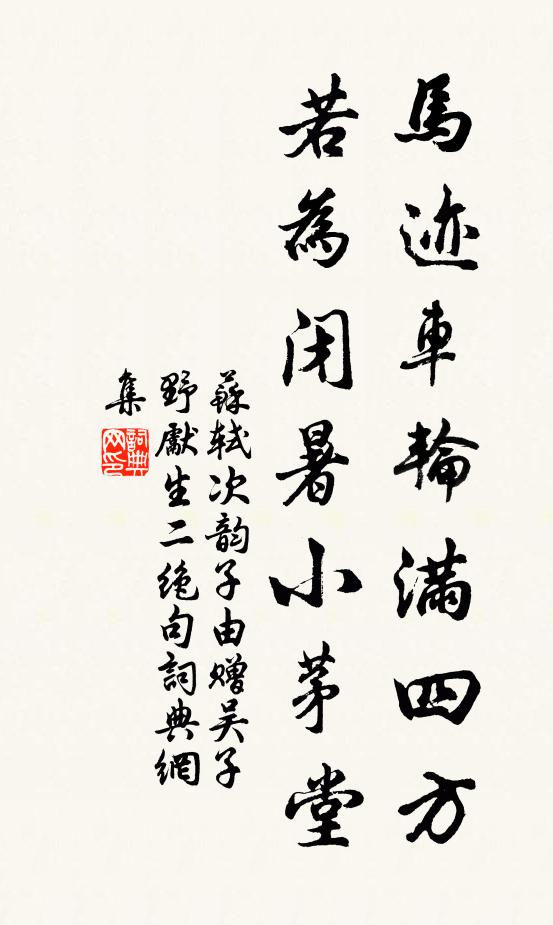 馬迹車輪滿四方
若為閉暑小茅堂
蘇軾次韵子由贈吴子
野獻生二絶句詞典網
集
詞典
网印